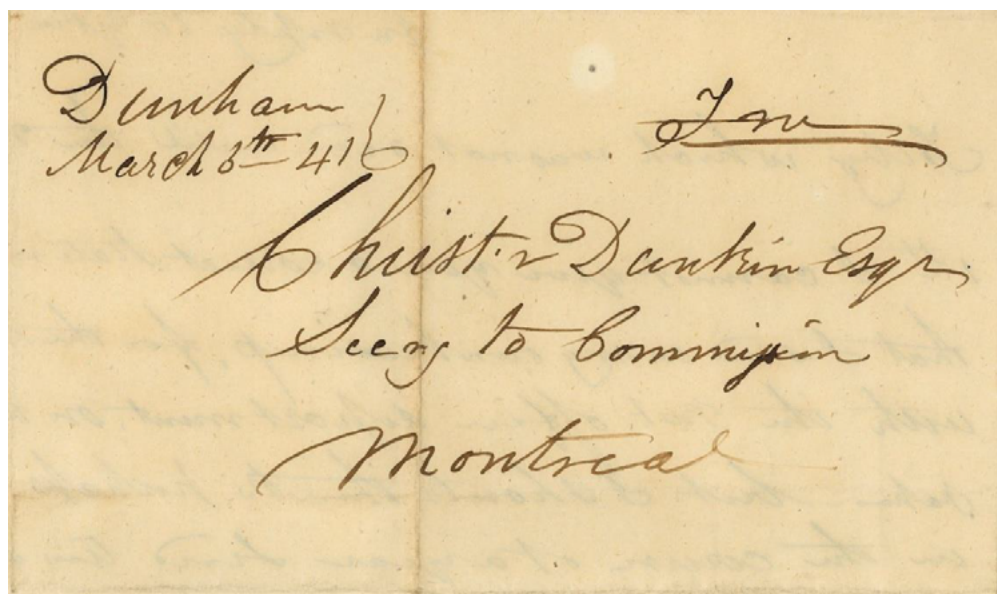 Dunham
March 6th 41
Free
Christr Dunkin Esqr
Secy to Commission
Montreal